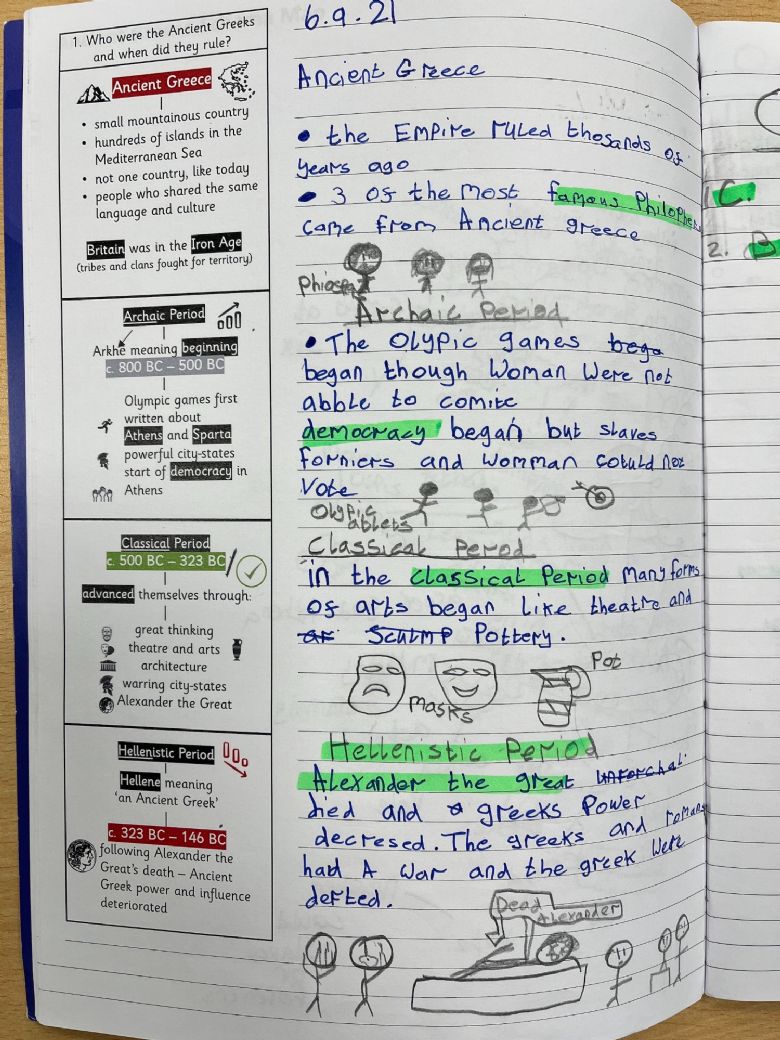 1. Who were the Ancient Greeks
and when did they rule?
Ancient Greece
• small mountainous country
• hundreds of islands in the
Mediterranean Sea
• not one country, like today
• people who shared the same
language and culture
Britain was in the Iron Age
(tribes and clans fought for territory)
Archaic Period
Arkhe meaning beginning
c. 800 BC – 500 BC
Olympic games first
written about
Athens and Sparta
powerful city-states
start of democracy in
Athens
Classical Period
c. 500 BC – 323 BC
advanced themselves through:
great thinking
theatre and arts
architecture
warring city-states
Alexander the Great
Hellenistic Period
Hellene meaning
‘an Ancient Greek’
c. 323 BC – 146 BC
following Alexander the
Great's death – Ancient
Greek power and influence
deteriorated
6.9.21
Ancient Greece
• the EMPire ruled thosands of
years ago
• 3 of the most famous Philophe
came from Ancient greece
Archaic Period
• The Olypic games bega
began though Woman were not
abble to comite
democracy began but slaves
forniers and womman cotuld not
Vote
Olypic
ablets
Classical Period
in the classical Period Many forms
of arts began like theatre and
Pottery.
masks
Pot
Hellenistic Period
Alexander the great
died and greeks Power
decresed. The greeks and romans
had A war and the greek were
defted.
Dead
Alexander
1 C.
2. B